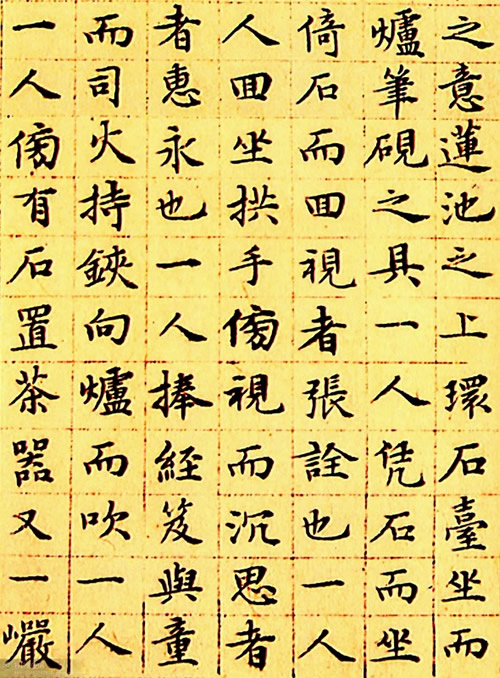 之意蓮池之上環石臺坐而
爐筆硯之具一人凭石而坐
倚石而囬視者張詮也一人
人囬坐拱手傍視而沉思者
者惠永也一人捧經笈與童
而司火持鋏向爐而吹一人
一人傍有石置茶器又一巖